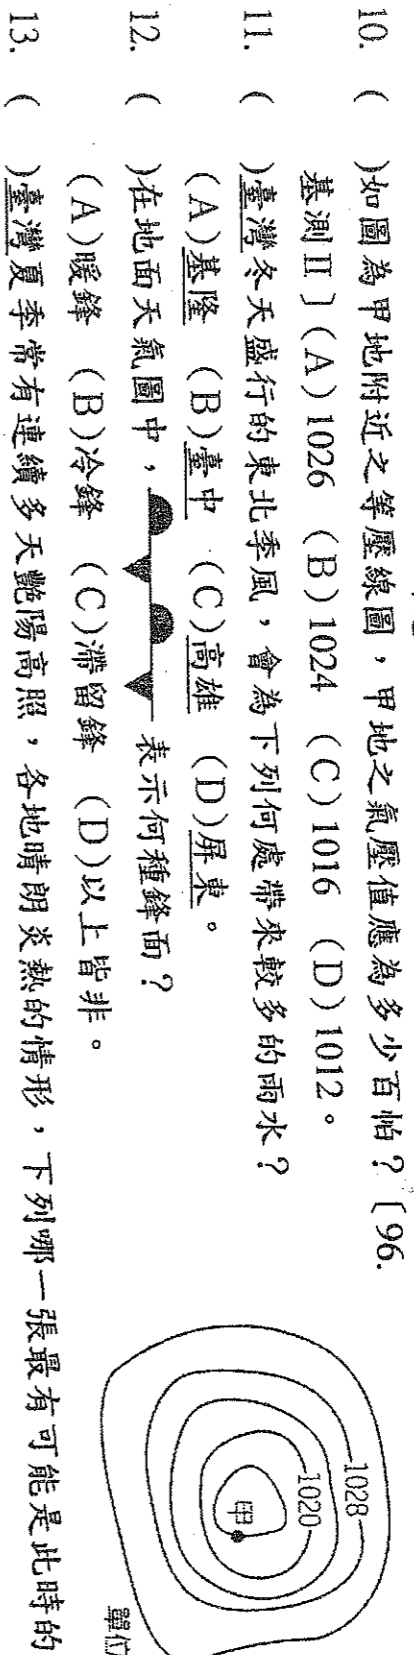 10. (　)如圖為甲地附近之等壓線圖，甲地之氣壓值應為多少百帕？〔96.
基測Ⅱ〕(A)1026 (B)1024 (C)1016 (D)1012。
11. (　)臺灣冬天盛行的東北季風，會為下列何處帶來較多的雨水？
(A)基隆 (B)臺中 (C)高雄 (D)屏東。
12. (　)在地面天氣圖中， 表示何種鋒面？
(A)暖鋒 (B)冷鋒 (C)滯留鋒 (D)以上皆非。
13. (　)臺灣夏季常有連續多天艷陽高照，各地晴朗炎熱的情形，下列哪一張最有可能是此時的
1028
1020
甲
單位